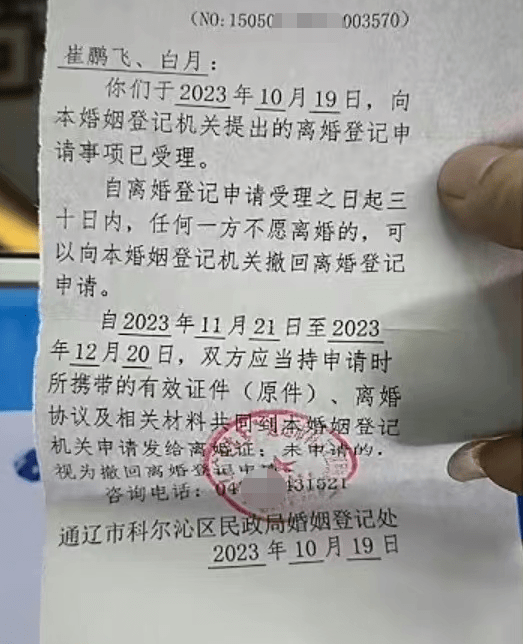 (NO:15050 003570)
崔鹏飞、白月：
你们于2023年10月19日，向
本婚姻登记机关提出的离婚登记申
请事项已受理。
自离婚登记申请受理之日起三
十日内，任何一方不愿离婚的，可
以向本婚姻登记机关撤回离婚登记
申请。
自2023年11月21日至2023
年12月20日，双方应当持申请时
所携带的有效证件（原件）、离婚
协议及相关材料共同到本婚姻登记
机关申请发给离婚证；未申请的，
视为撤回离婚登记申
咨询电话：04 431521
通辽市科尔沁区民政局婚姻登记处
2023年10月19日